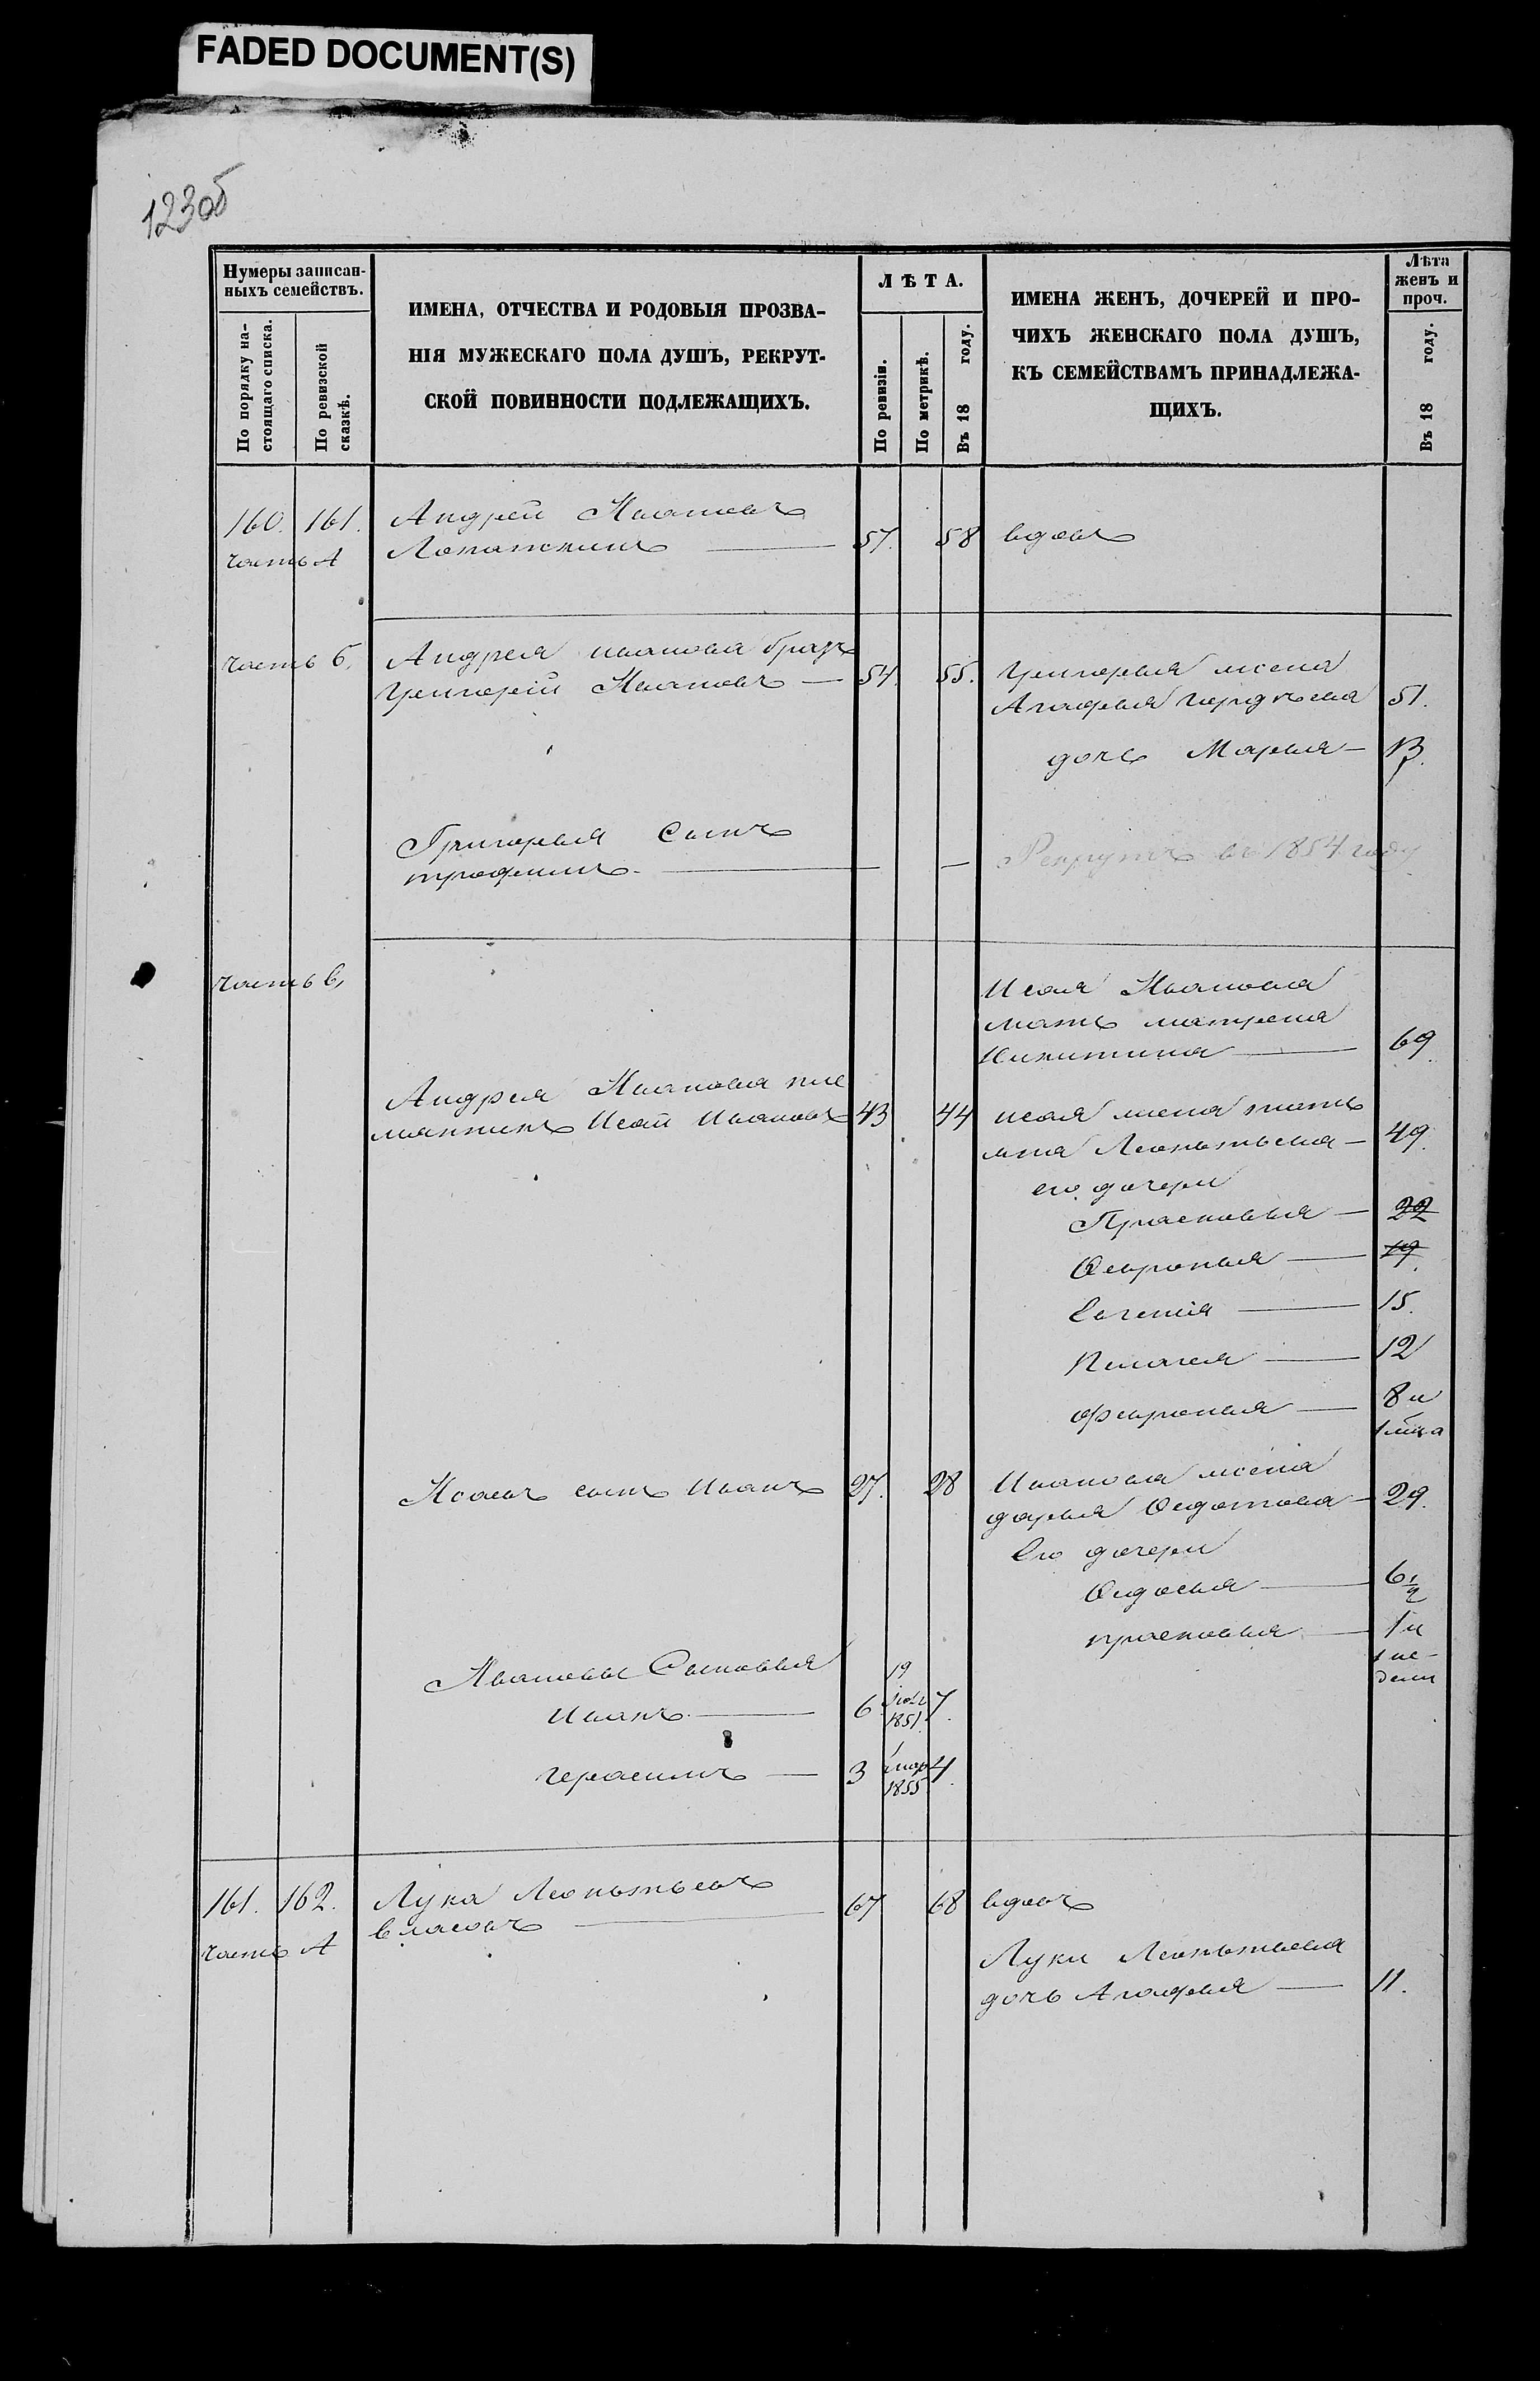 FADED DOCUMENT(S)
123об
Нумеры записан-
ныхъ семействъ.
По порядку на-
стоящаго списка.
По ревизской
сказкѣ.
ИМЕНА, ОТЧЕСТВА И РОДОВЫЯ ПРОЗВА-
НІЯ МУЖЕСКАГО ПОЛА ДУШЪ, РЕКРУТ-
СКОЙ ПОВИННОСТИ ПОДЛЕЖАЩИХЪ.
ЛѢТА.
По ревизіи.
По метрикѣ.
Въ 18 году.
ИМЕНА ЖЕНЪ, ДОЧЕРЕЙ И ПРО-
ЧИХЪ ЖЕНСКАГО ПОЛА ДУШЪ,
КЪ СЕМЕЙСТВАМЪ ПРИНАДЛЕЖА-
ЩИХЪ.
Лѣта
женъ и
проч.
Въ 18 году.
160. 161. Андрей Ивановъ
часть А Лопаткинъ — 57. 58 вдовъ
часть б, Андрея иванова братъ
Григорій Ивановъ — 54. 55. Григорья жена
Агафья 51.
дочь Марья — 13.
Григорья Сынъ
трофимъ — — Рекрутъ въ 1854 году
часть в,
Исая Иванова
мать матрена
Никитина — 69.
Андрея Иванова пле
мянникъ Исай Ивановъ 43 44 исая жена
Леонтьева — 49.
его дочери
Прасковья — 22
Февронья — 19.
Евгенія — 15.
Пелагея — 12
феуронья — 8 и
1 мѣца
Исаевъ сынъ Иванъ 27. 28 Иванова жена
дарья Федотова — 29.
Его дочери
Федосья — 6 1/2
прасковья — 1 и
1 не-
дели
Ивановы Сыновья
Иванъ — 6 19
1851. 7.
герасимъ — 3 1
мар
1855. 4.
161. 162. Лука Леонтьевъ
власовъ — 67 68 вдовъ
часть А
Луки Леонтьева
дочь Агафья — 11.